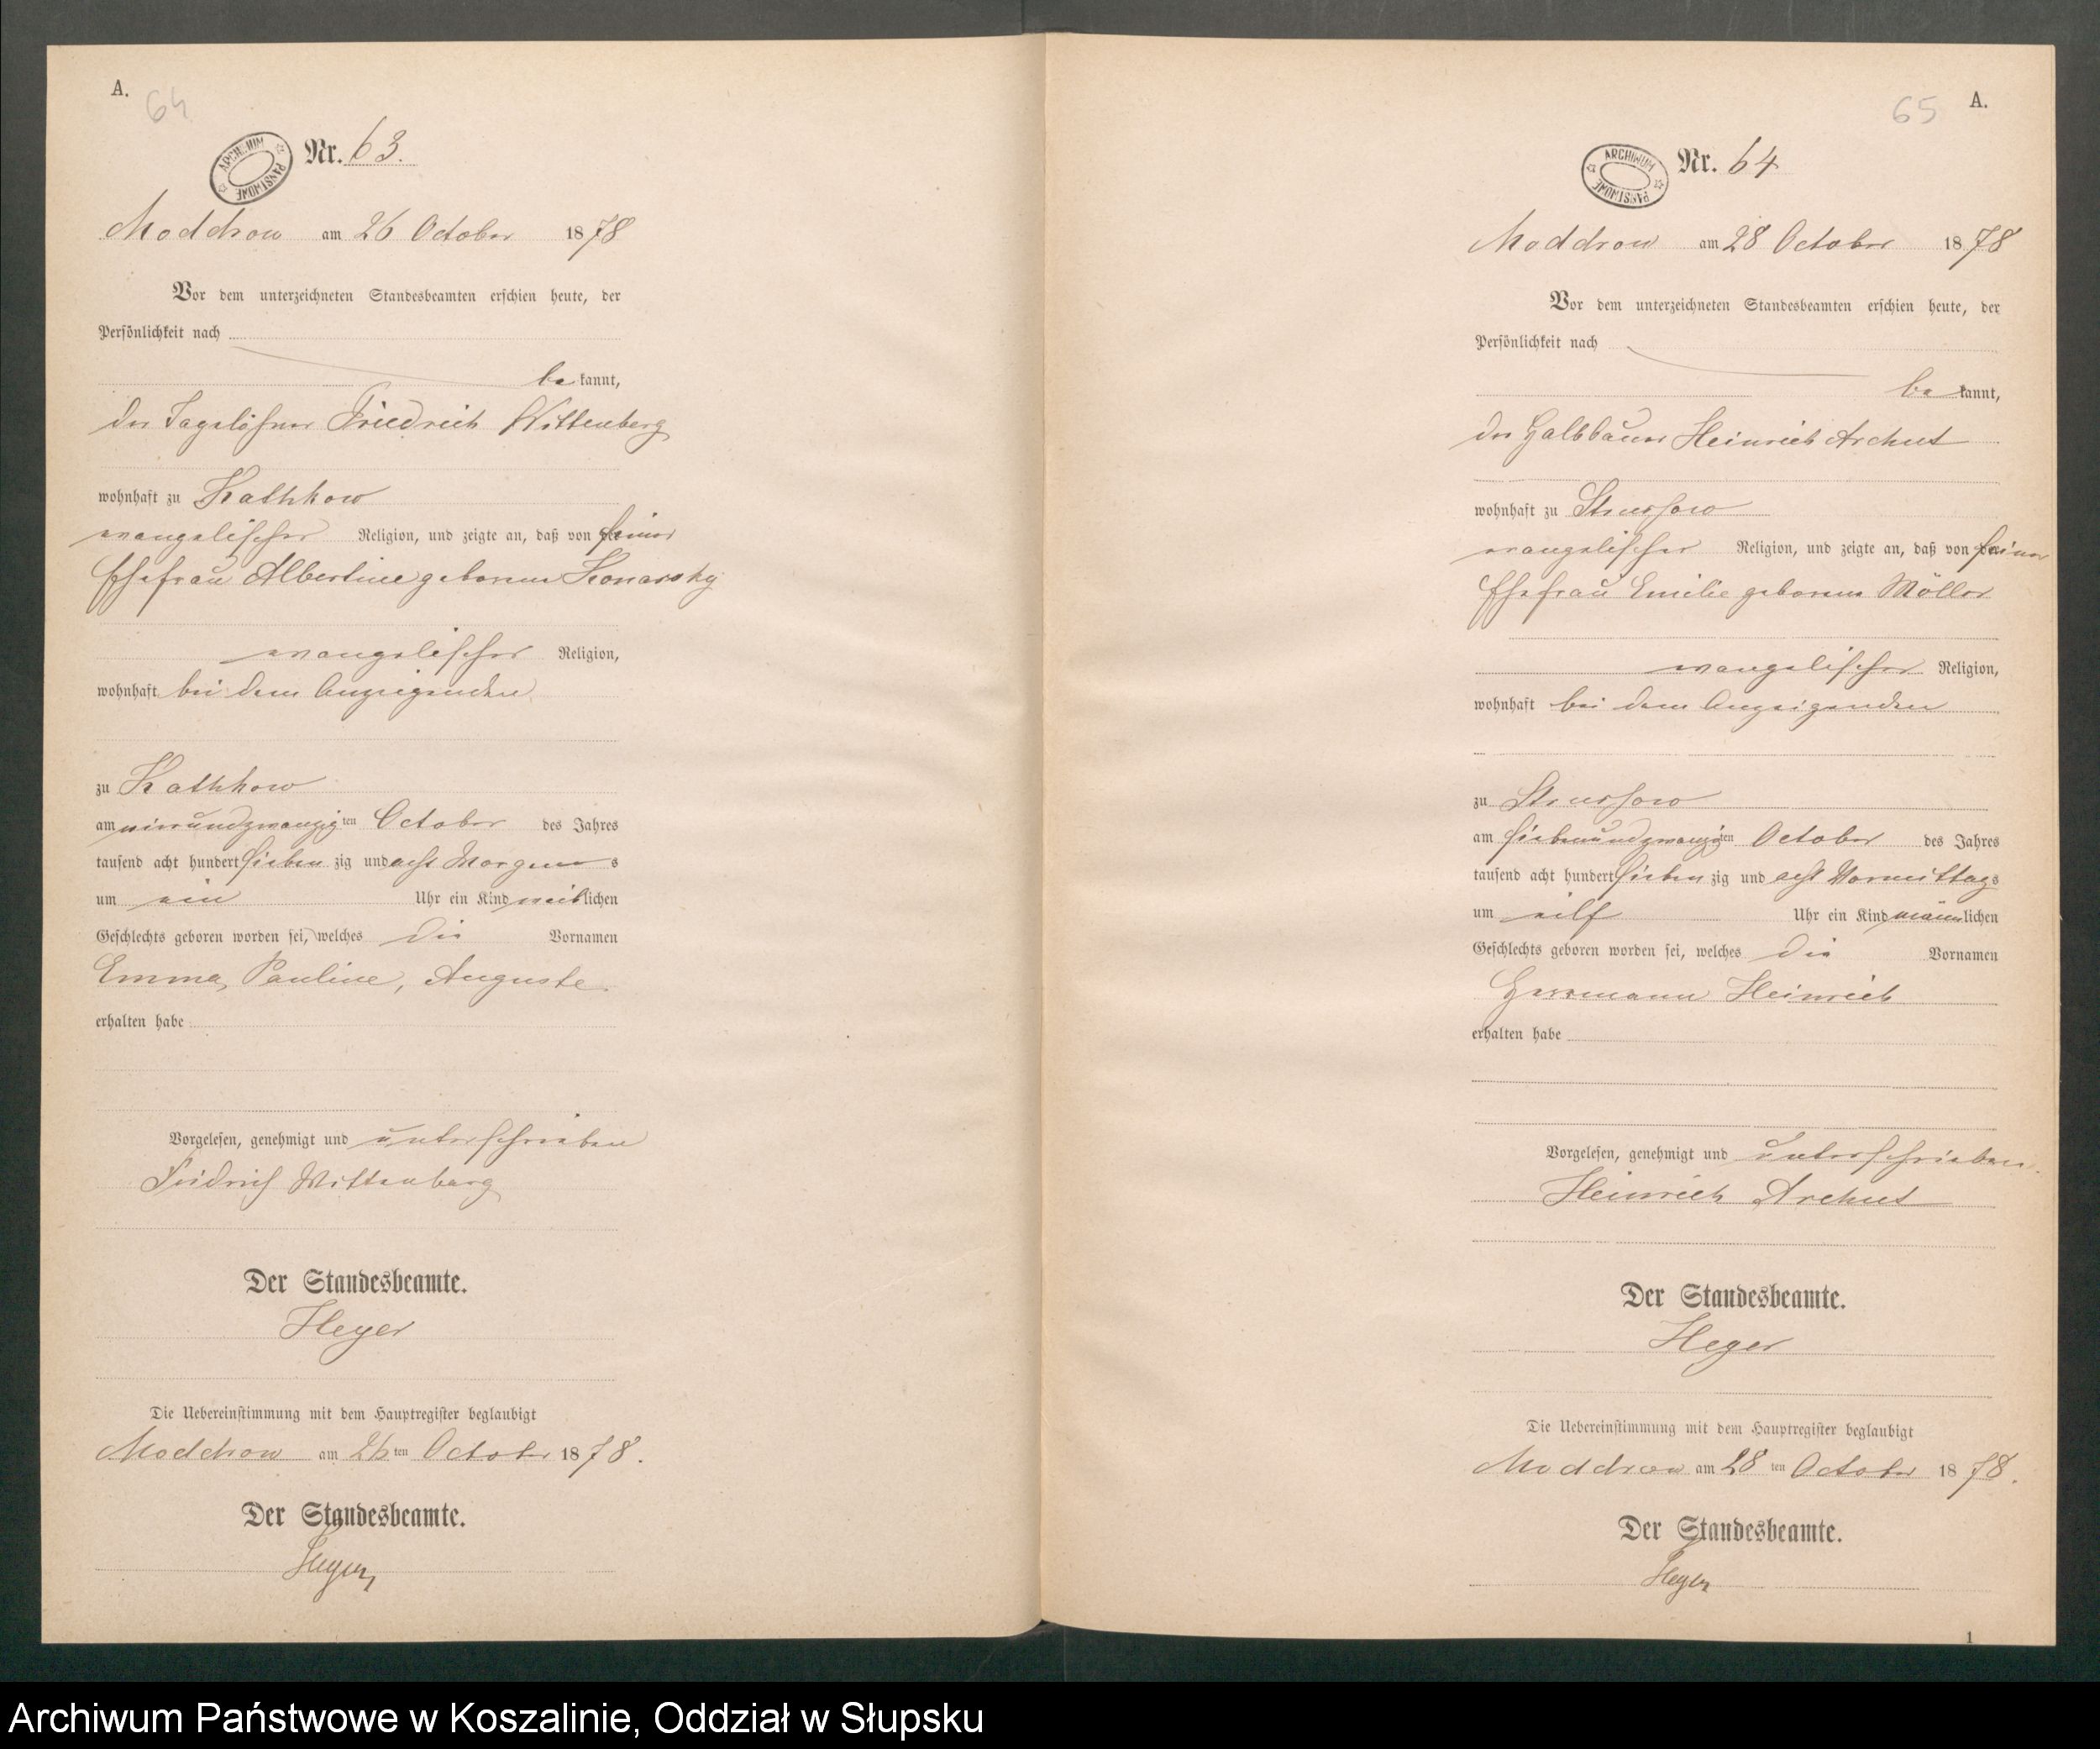 A.
64
ARCHIWUM PAŃSTWOWE
Nr. 63.
Moddrow am 26 October 1878
Vor dem unterzeichneten Standesbeamten erschien heute, der
Persönlichkeit nach
bekannt,
der Tagelöhner Friedrich Wittenberg
wohnhaft zu Kathkow
evangelischer Religion, und zeigte an, daß von seiner
Ehefrau Albertine geborene Konarsky
evangelischer Religion,
wohnhaft bei dem Anzeigenden
zu Kathkow
am vierundzwanzigten October des Jahres
tausend acht hundert siebenzig und acht Morgens
um ein Uhr ein Kind weiblichen
Geschlechts geboren worden sei, welches die Vornamen
Emma, Pauline, Auguste.
erhalten habe
Vorgelesen, genehmigt und unterschrieben
Fridrich Wittenberg
Der Standesbeamte.
Heyer
Die Uebereinstimmung mit dem Hauptregister beglaubigt
Moddrow am 26ten October 1878.
Der Standesbeamte.
Heyer
65
A.
ARCHIWUM PAŃSTWOWE
Nr. 64
Moddrow am 28 October 1878
Vor dem unterzeichneten Standesbeamten erschien heute, der
Persönlichkeit nach
bekannt,
der Halbbauer Heinrich Archut
wohnhaft zu Strussow
evangelischer Religion, und zeigte an, daß von seiner
Ehefrau Emilie geborene Möller
evangelischer Religion,
wohnhaft bei dem Anzeigenden
zu Strussow
am siebenundzwanzigten October des Jahres
tausend acht hundert siebenzig und acht Vormittags
um eilf Uhr ein Kind männlichen
Geschlechts geboren worden sei, welches die Vornamen
Herrmann Heinrich
erhalten habe
Vorgelesen, genehmigt und unterschrieben.
Heinrich Archut
Der Standesbeamte.
Heyer
Die Uebereinstimmung mit dem Hauptregister beglaubigt
Moddrow am 28ten October 1878.
Der Standesbeamte.
Heyer
1
Archiwum Państwowe w Koszalinie, Oddział w Słupsku